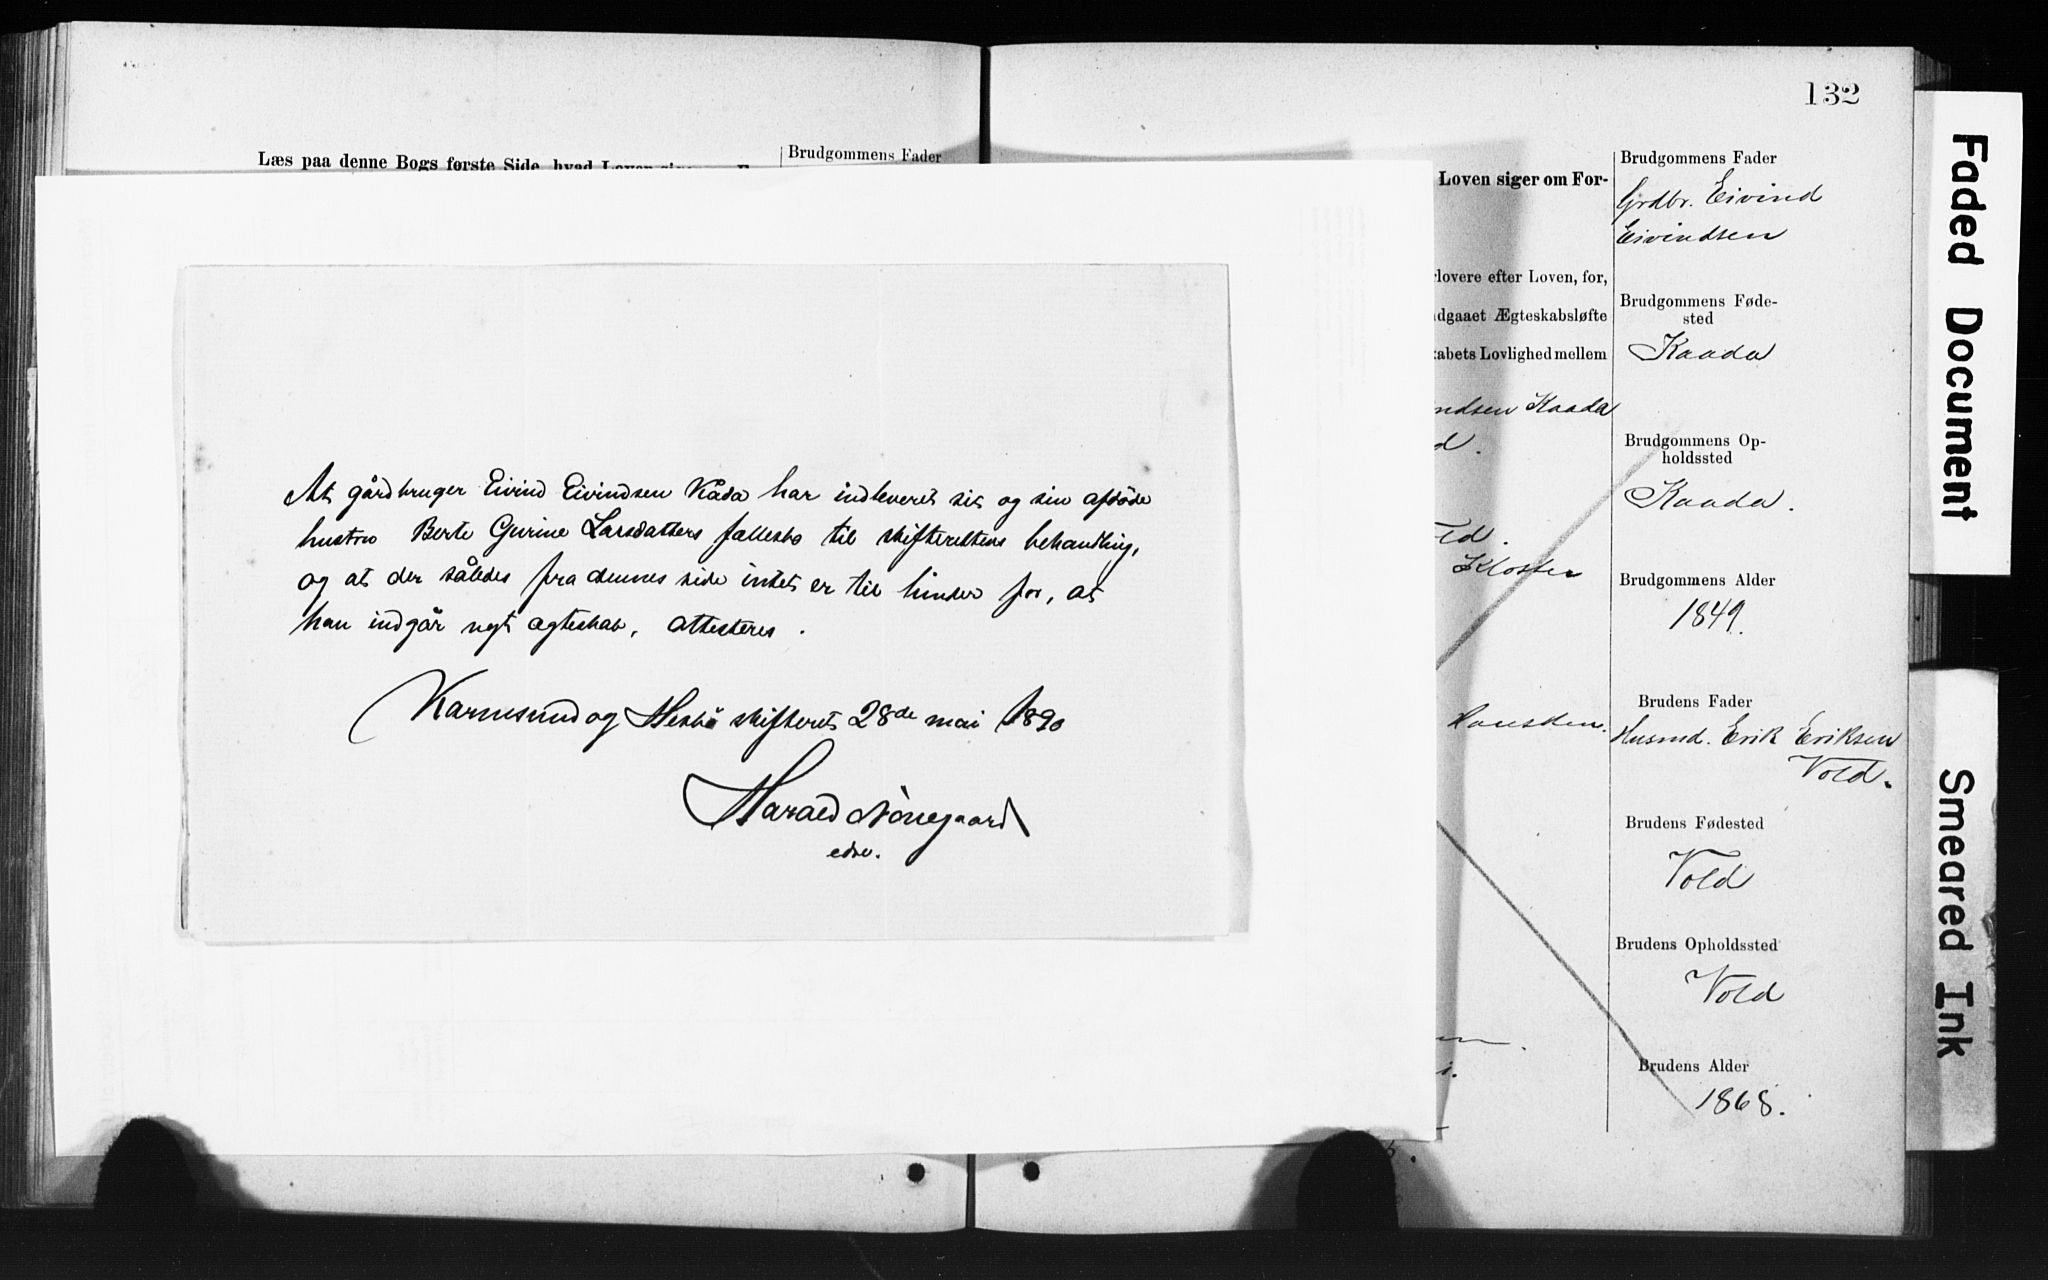 132
Læs paa denne Bogs første Side, hvad Loven
Brudgommens Fader
At gårdbruger Eivind Eivindsen Kåda har indleveret sit og sin afdøde
hustru Berte Gurine Larsdatters fællesbo til skifterettens behandling,
og at der således fra dennes side intet er til hinder for, at
han indgår nyt ægteskab, attesteres.
Karmsund og Hesbø skifteret 28de mai 1890
Harald Nørregaard
edsv.
Loven siger om For-
rlovere efter Loven, for,
dgaaet Ægteskabsløfte
kabets Lovlighed mellem
ndsen Kaada
d.
Kloster
Brudgommens Fader
Grdbr. Eivind
Eivindsen
Brudgommens Føde-
sted
Kaada
Brudgommens Op-
holdssted
Kaada.
Brudgommens Alder
1849.
Brudens Fader
Husmd. Erik Eriksen
Vold.
Brudens Fødested
Vold
Brudens Opholdssted
Vold
Brudens Alder
1868.
Faded Document
Smeared Ink